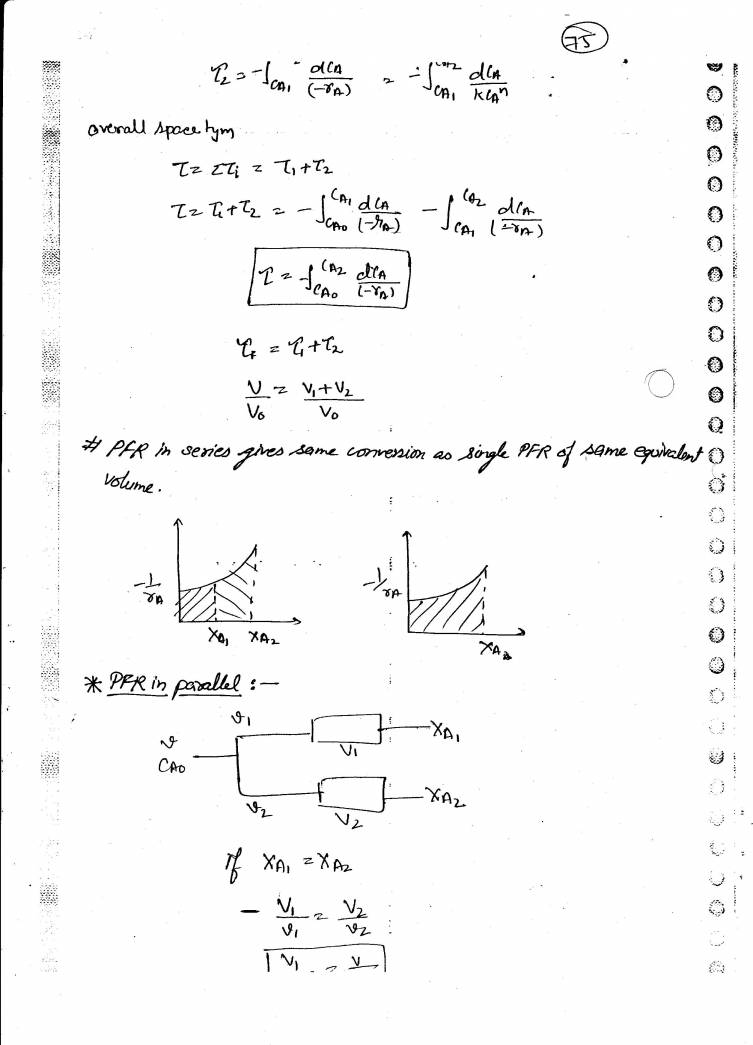 75
τ₂ = -∫_CA₁ dCA/(-rA) = -∫_CA₁^CA₂ dCA/kCAⁿ
overall space tym
τ = Στᵢ = τ₁+τ₂
τ = τ₁+τ₂ = -∫_CA₀^CA₁ dCA/(-rA) -∫_CA₁^CA₂ dCA/(-rA)
τ = -∫_CA₀^CA₂ dCA/(-rA)
= τ₁+τ₂
V/V₀ = V₁+V₂/V₀
# PFR in series gives same conversion as single PFR of same equivalent
volume.
-1/rA -1/rA
XA₁ XA₂
XA₂
* PFR in parallel :—
v₁
XA₁
v V₁
CA₀
XA₂
v₂ V₂
If XA₁ = XA₂
- V₁/v₁ = V₂/v₂
V₁ = V